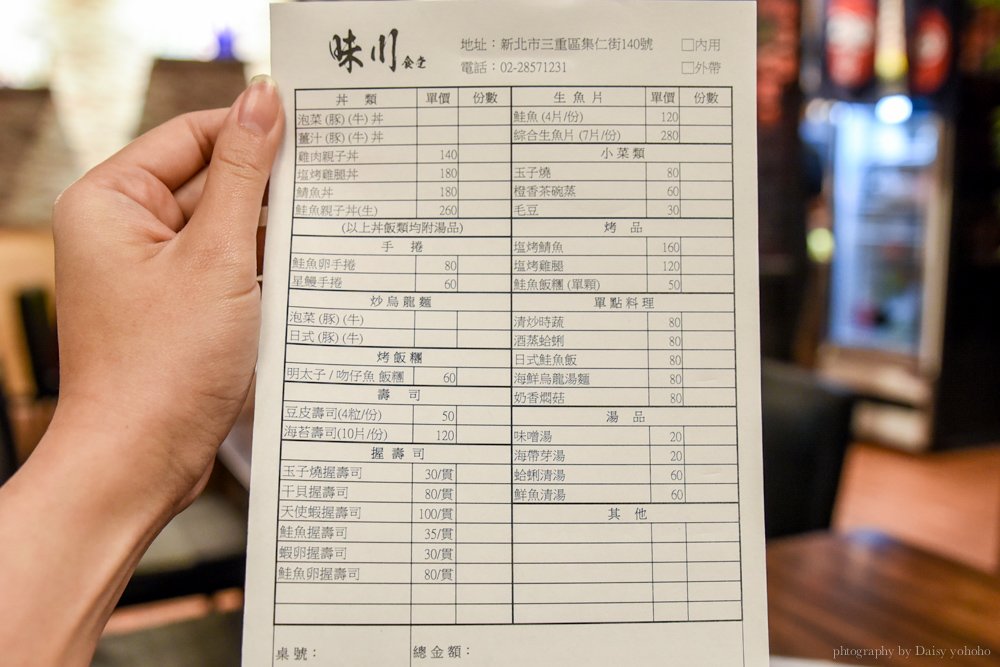 味川 食堂
地址：新北市三重區集仁街140號 □內用
電話：02-28571231 □外帶
丼 類 單價 份數
泡菜 (豚) (牛) 丼
薑汁 (豚) (牛) 丼
雞肉親子丼 140
塩烤雞腿丼 180
鯖魚丼 180
鮭魚親子丼(生) 260
(以上丼飯類均附湯品)
手 捲
鮭魚卵手捲 80
星鰻手捲 60
炒烏龍麵
泡菜 (豚) (牛)
日式 (豚) (牛)
烤飯糰
明太子 / 吻仔魚 飯糰 60
壽 司
豆皮壽司(4粒/份) 50
海苔壽司(10片/份) 120
握 壽 司
玉子燒握壽司 30/貫
干貝握壽司 80/貫
天使蝦握壽司 100/貫
鮭魚握壽司 35/貫
蝦卵握壽司 30/貫
鮭魚卵握壽司 80/貫
生 魚 片 單價 份數
鮭魚 (4片/份) 120
綜合生魚片 (7片/份) 280
小 菜 類
玉子燒 80
橙香茶碗蒸 60
毛豆 30
烤 品
塩烤鯖魚 160
塩烤雞腿 120
鮭魚飯糰 (單顆) 50
單點料理
清炒時蔬 80
酒蒸蛤蜊 80
日式鮭魚飯 80
海鮮烏龍湯麵 80
奶香燜菇 80
湯 品
味噌湯 20
海帶芽湯 20
蛤蜊清湯 60
鮮魚清湯 60
其 他
桌號： 總金額：
phtography by Daisy yohoho